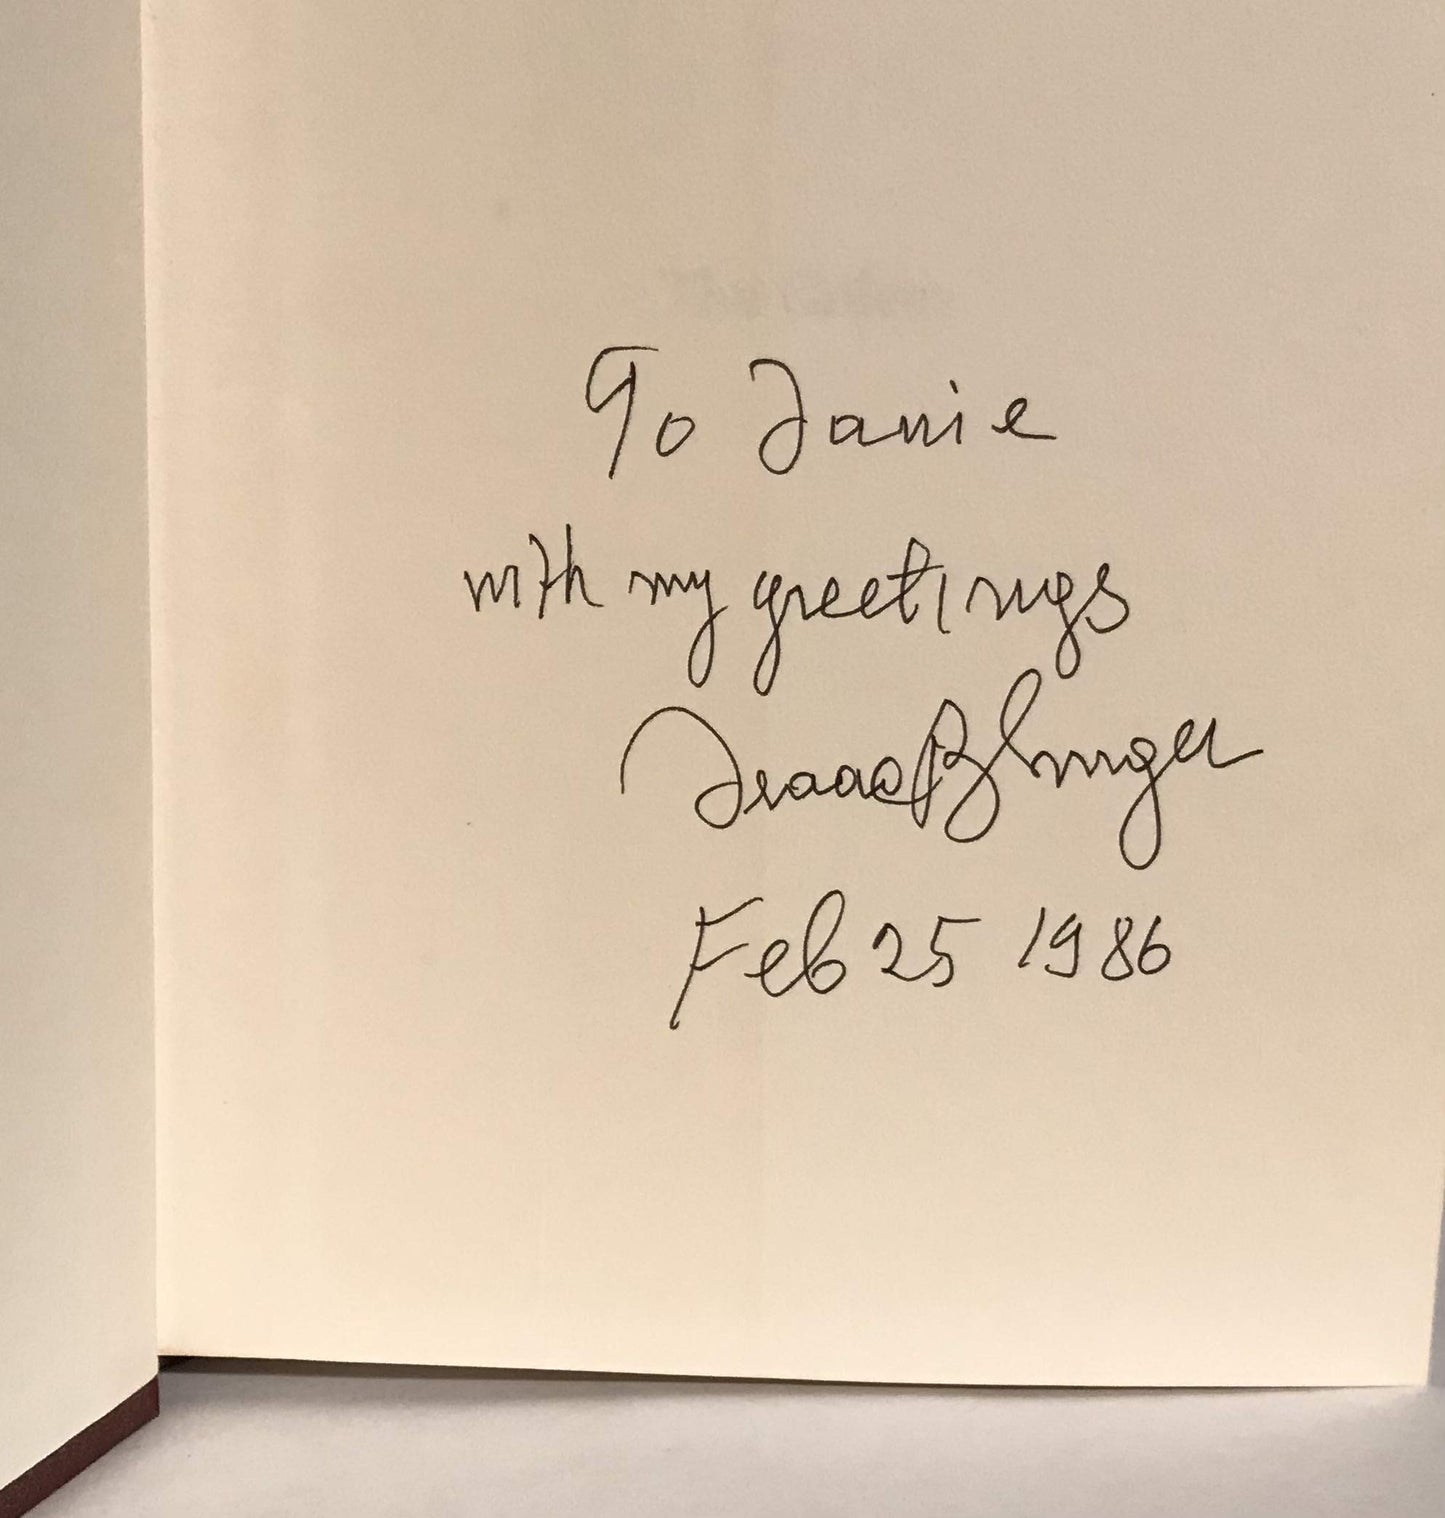 To Janie
with my greetings
Isaac B Singer
Feb 25 1986